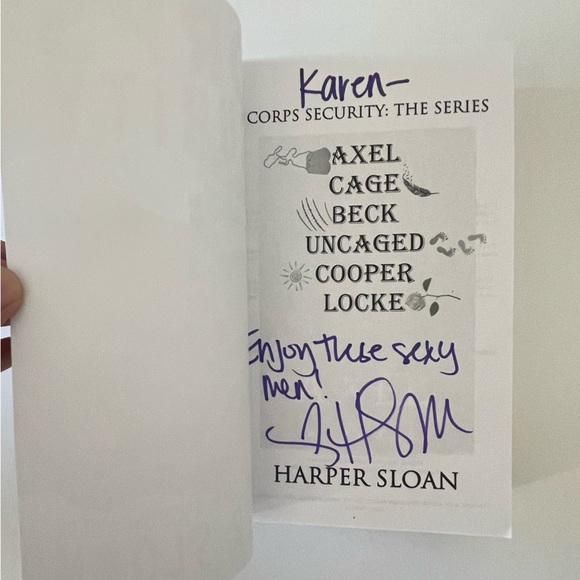 Karen-
CORPS SECURITY: THE SERIES
AXEL
CAGE
BECK
UNCAGED
COOPER
LOCKE
Enjoy these sexy
men!
HARPER SLOAN